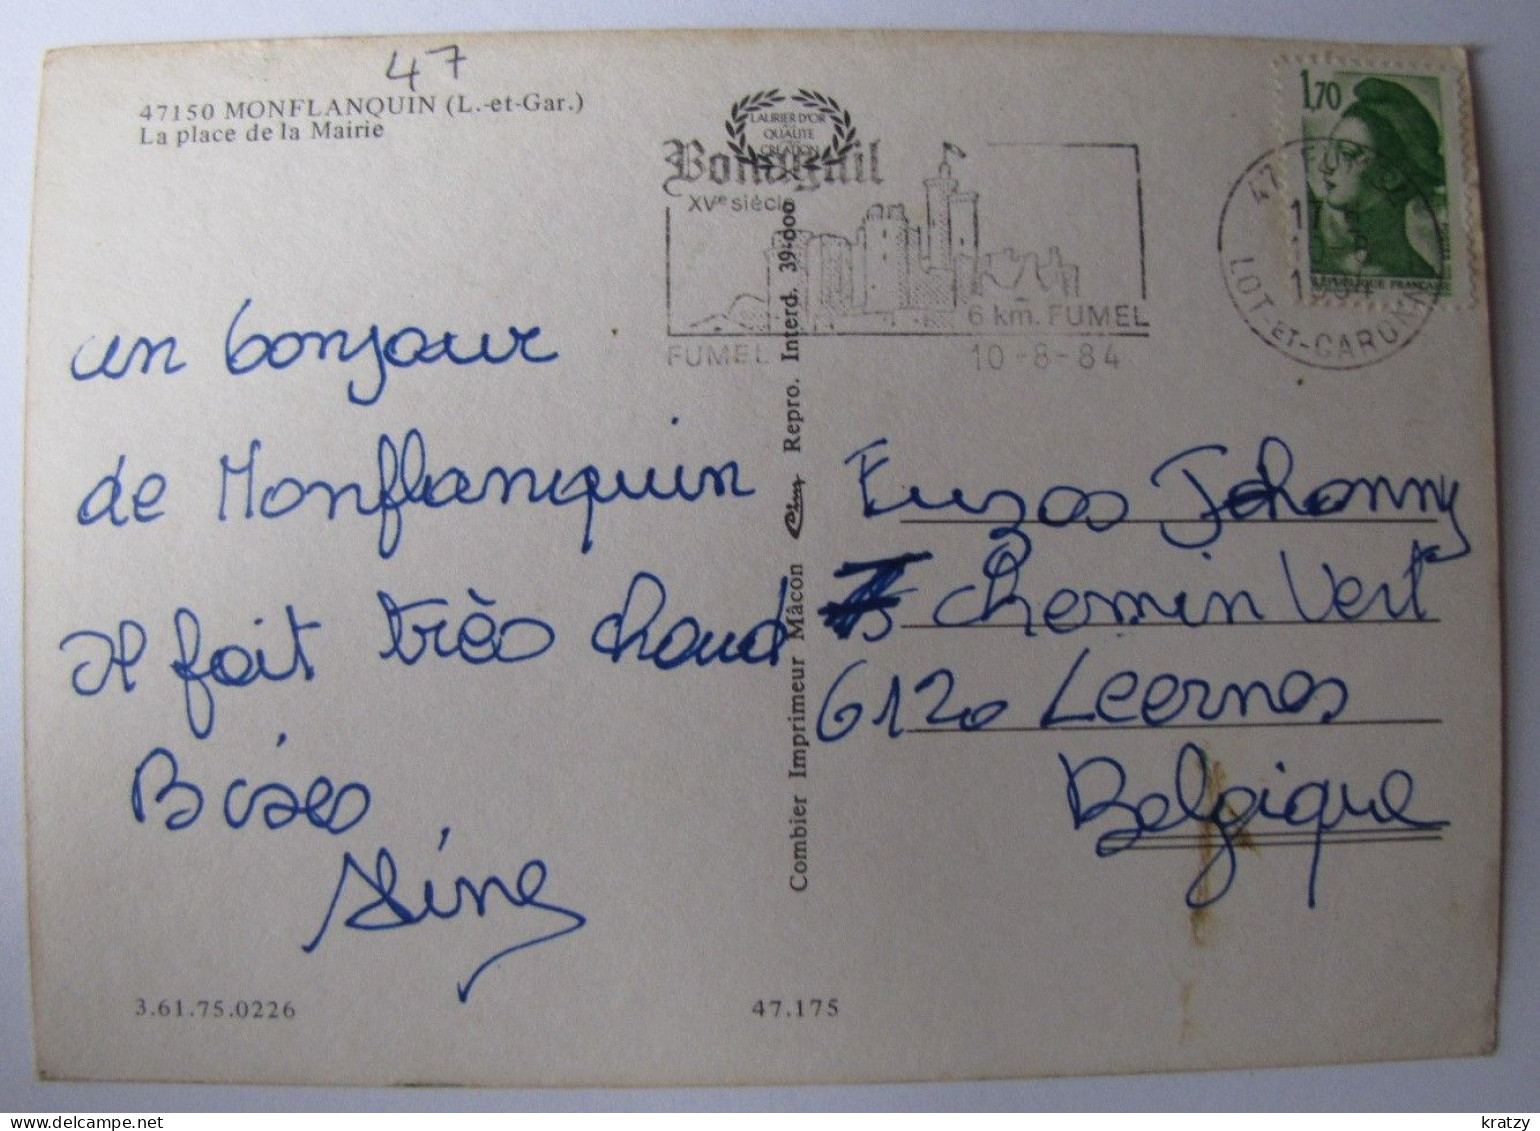 47
47150 MONFLANQUIN (L.-et-Gar.)
La place de la Mairie
LAURIER D'OR
QUALITE
CREATION
Bonaguil
XVe siècle
6 km. FUMEL
FUMEL 10-8-84
1,70
REPUBLIQUE FRANÇAISE
47 FUMEL
17 H
LOT-ET-GARONNE
un bonjour
de Monflanquin
Il fait très chaud
Bises
Combier Imprimeur Mâcon Cim Repro. Interd. 39.000
Johanny
Chemin Vert
6120 Leernes
Belgique
3.61.75.0226
47.175
kratzy